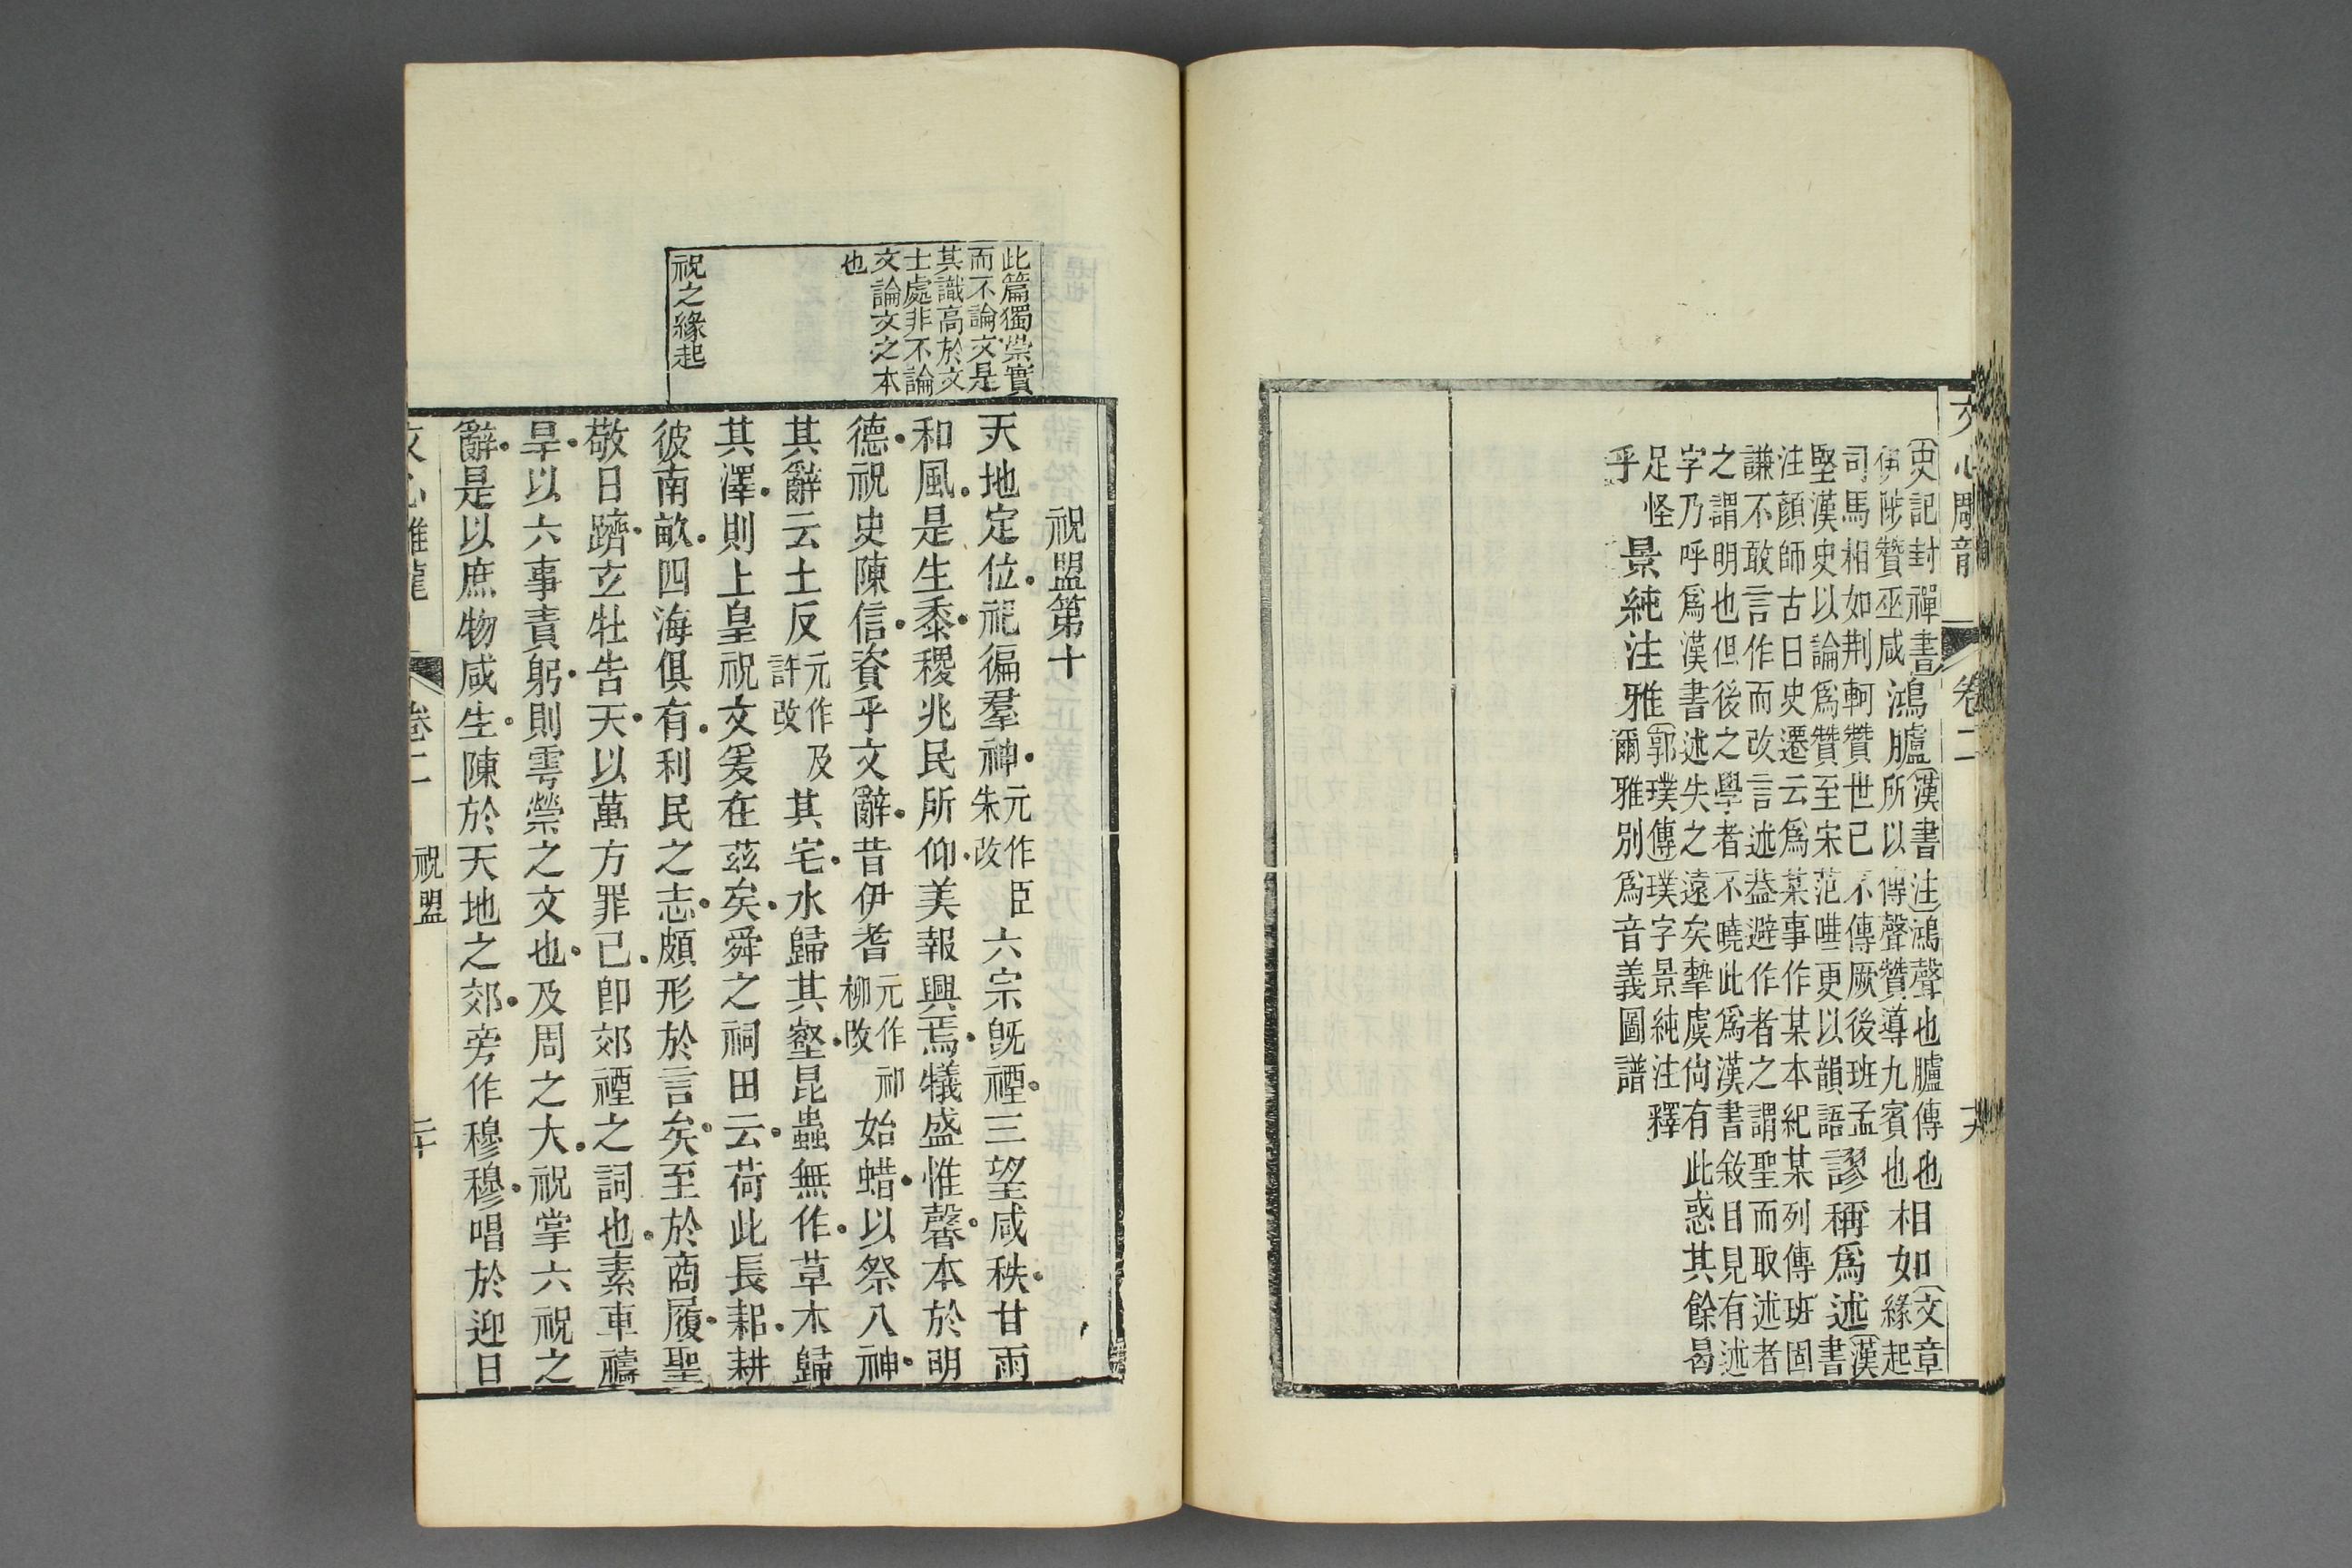 文心雕龍 卷二
史記封禪書
伊陟贊巫咸
鴻臚
漢書注鴻聲也臚傳也
所以傳聲贊導九賓也
相如
文章
緣起
司馬相如荆軻贊世已不傳厥後班孟
堅漢史以論爲贊至宋范曄更以韻語
謬稱爲述
漢
書
注顏師古曰史遷云爲某事作某本紀某列傳班固
謙不敢言作而改言述葢避作者之謂聖而取述者
之謂明也但後之學者不曉此爲漢書敘目見有述
字乃呼爲漢書述失之遠矣摯虞尙有此惑其餘曷
足怪
乎
景純注雅
郭璞傳璞字景純注釋
爾雅別爲音義圖譜
此篇獨崇實
而不論文是
其識高於文
士處非不論
文論文之本
也
祝之緣起
祝盟第十
天地定位祀徧羣神元作臣朱改六宗旣禋三望咸秩甘雨
和風是生黍稷兆民所仰美報興焉犧盛惟馨本於明
德祝史陳信資乎文辭昔伊耆元作祁柳改始蜡以祭八神
其辭云土反元作及許改其宅水歸其壑昆蟲無作草木歸
其澤則上皇祝文爰在茲矣舜之祠田云荷此長耜耕
彼南畝四海俱有利民之志頗形於言矣至於商履聖
敬日躋玄牡告天以萬方罪已卽郊禋之詞也素車禱
旱以六事責躬則雩禜之文也及周之大祝掌六祝之
辭是以庶物咸生陳於天地之郊旁作穆穆唱於迎日
文心雕龍 卷二 祝盟 二十